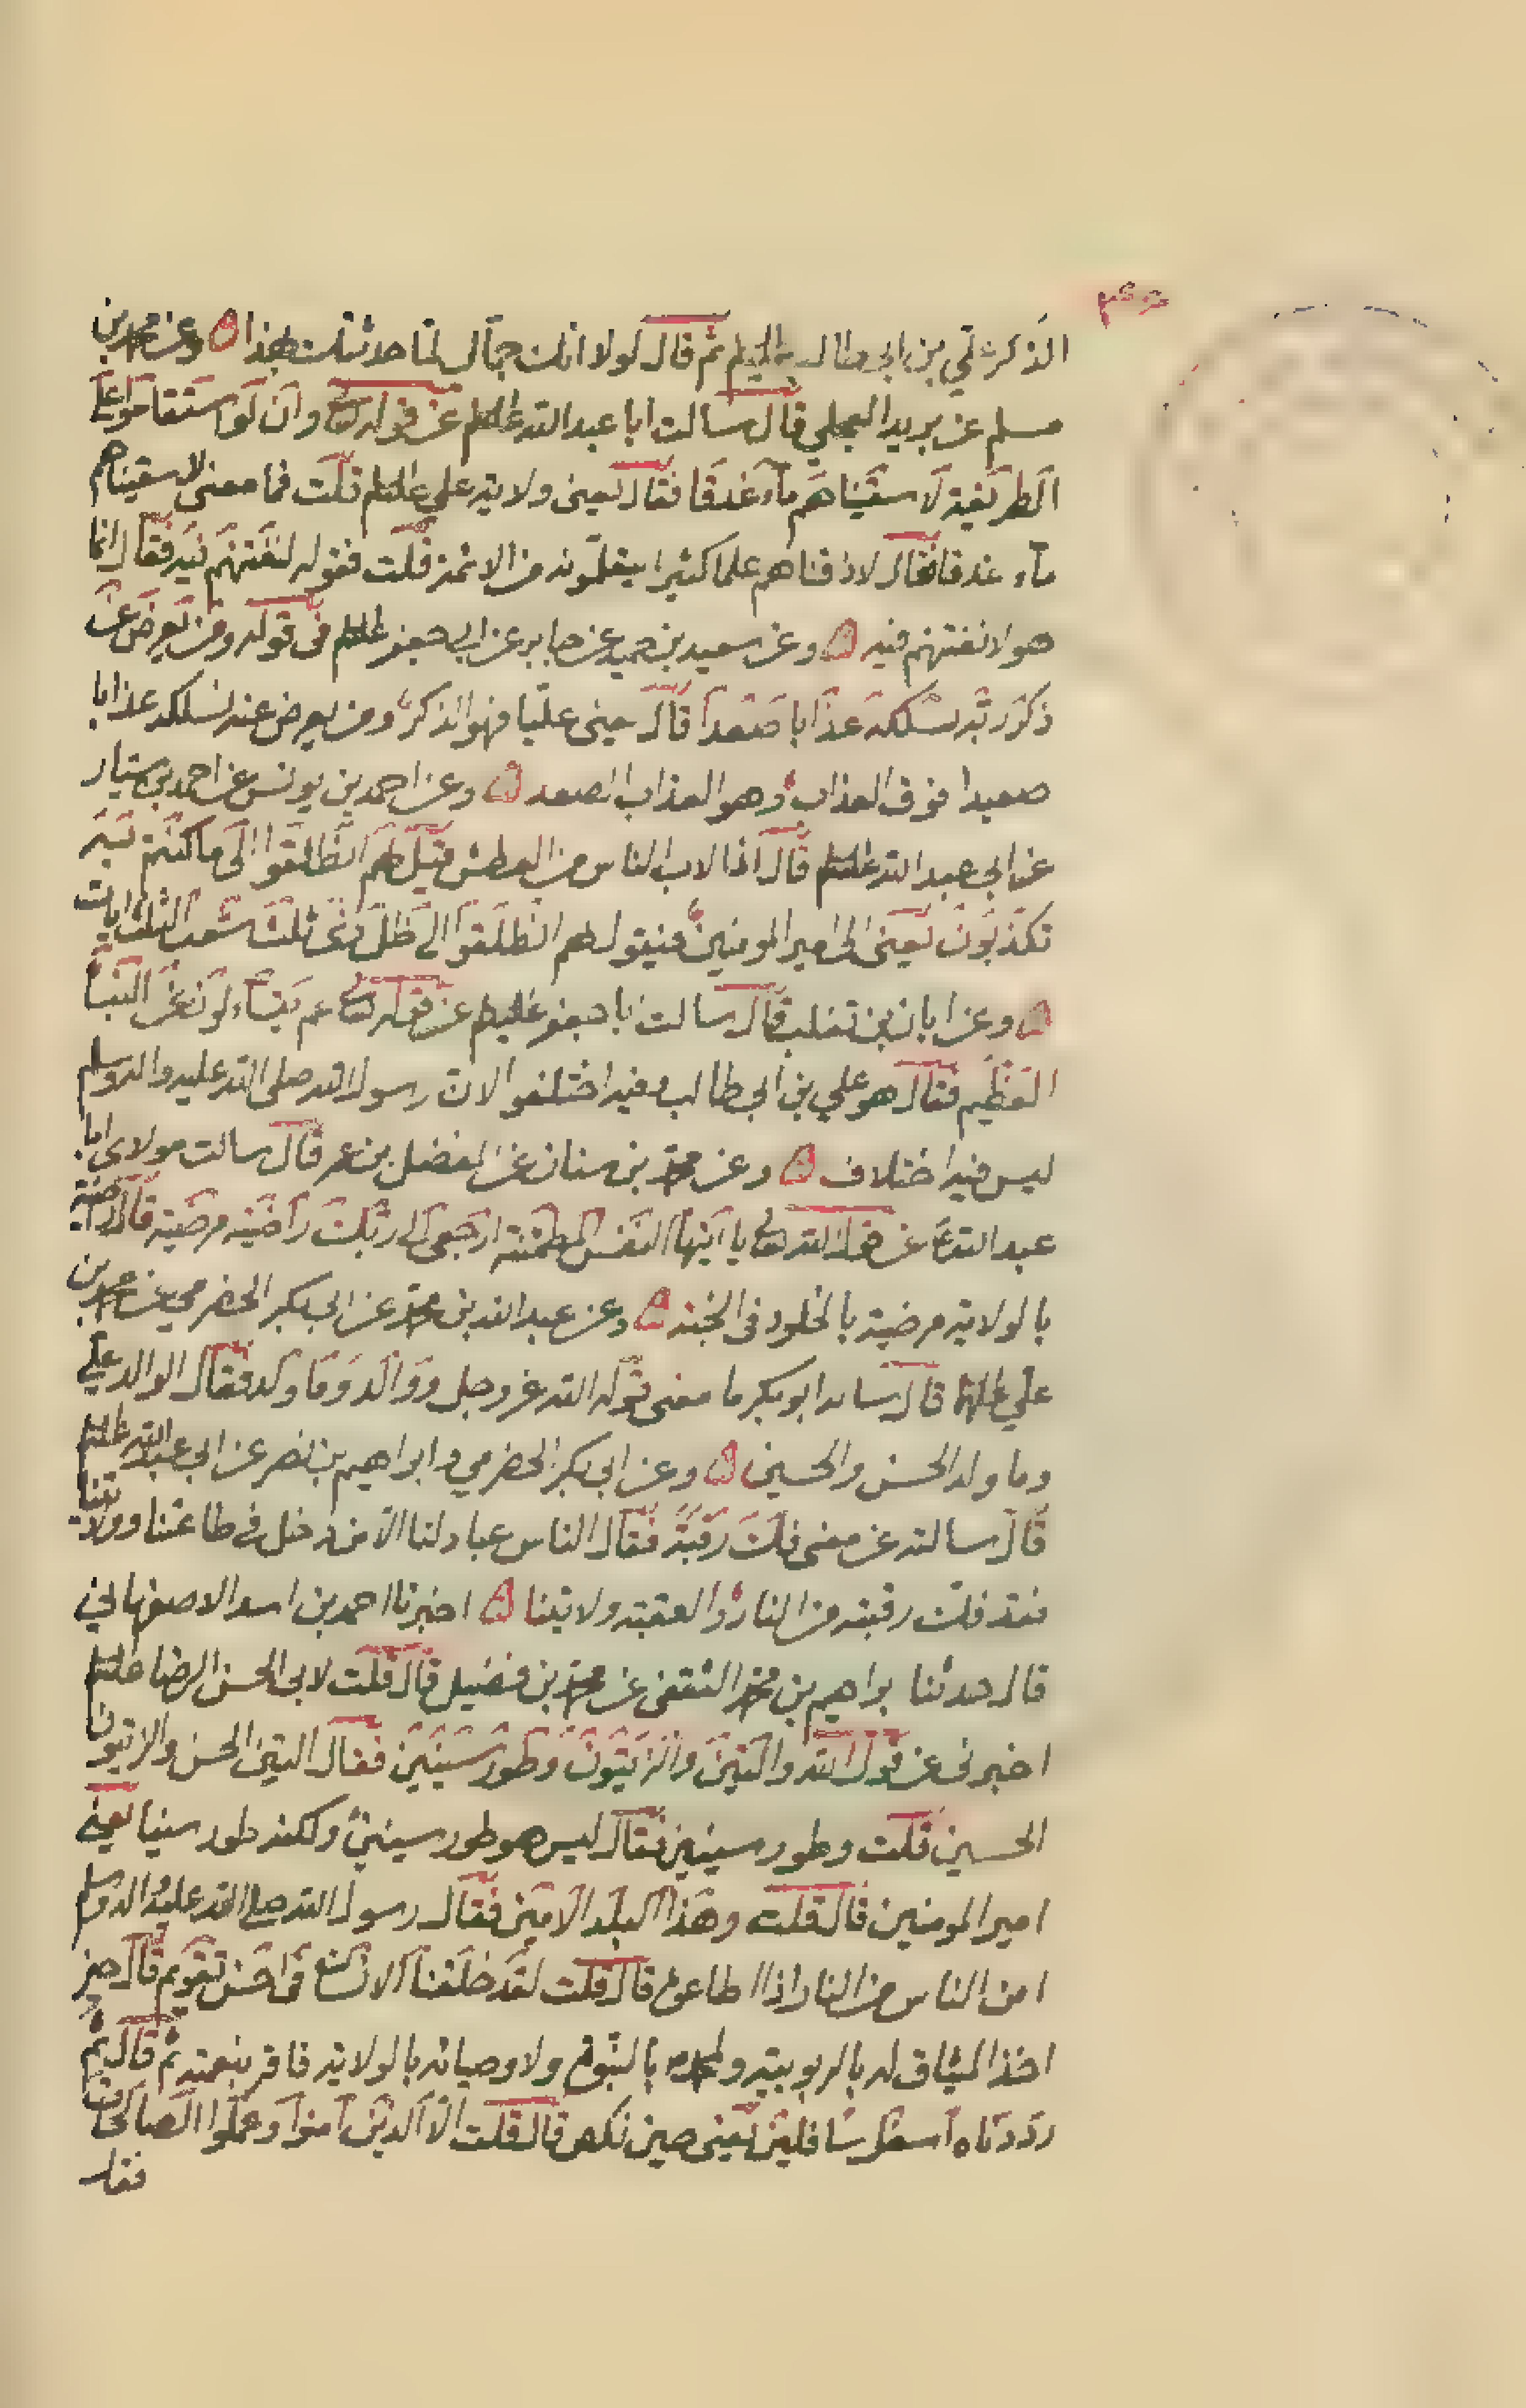 الذكر علي بن ابي طالب عليه السلام ثم قال لولا انك جمال لما حدثتك بهذا وعن محمد بن
مسلم عن بريد العجلي قال سالت ابا عبد الله عليه السلام عن قوله تعالى وان لو استقاموا على
الطريقة لاسقيناهم ماء غدقا فقال يعني ولاية علي عليه السلام قلت فما معنى لاسقيناهم
ماء غدقا فقال لاذقناهم علما كثيرا يتعلمونه من الائمة قلت فقوله لنفتنهم فيه فقال انما
هو لا نفتنهم فيه وعن سعيد بن حميد عن جابر عن ابي جعفر عليه السلام في قوله ومن يعرض عن
ذكر ربه نسلكه عذابا صعدا قال حين عليا فهو الذكر ومن يعرض عنه نسلكه عذابا
صعيدا فوق العذاب وهو العذاب الصعد وعن احمد بن يونس عن احمد بن سيار
عن ابي عبد الله عليه السلام قال اذا لاب الناس من العطش قيل لهم انطلقوا الى ما كنتم به
تكذبون يعني الى امير المومنين فيقول لهم انطلقوا الى ظل ذي ثلث شعب الثلث ايات
وعن ابان بن تغلب قال سالت ابا جعفر عليه السلام عن قوله تعالى عم يتساءلون عن النبا
العظيم فقال هو علي بن ابي طالب وفيه اختلفوا لان رسول الله صلى الله عليه واله وسلم
ليس فيه اختلاف وعن محمد بن سنان عن المفضل بن عمر قال سالت مولاي ابا
عبد الله ع عن قول الله تعالى يا ايتها النفس المطمئنة ارجعي الى ربك راضية مرضية قال راضية
بالولاية مرضية بالخلود في الجنة وعن عبد الله بن محمد عن ابي بكر الحضرمي عن محمد بن
علي عليهما قال ساله ابو بكر ما معنى قول الله عز وجل ووالد وما ولد فقال الوالد علي
وما ولد الحسن والحسين وعن ابي بكر الحضرمي وابراهيم بن نضر عن ابي عبد الله عليه السلام
قال سالته عن معنى فك رقبة فقال الناس عباد لنا الا من دخل في طاعتنا وولايتنا
فقد فك رقبته من النار والعقبة ولايتنا اخبرنا احمد بن اسد الاصفهاني
قال حدثنا ابراهيم بن محمد الثقفي عن محمد بن فضيل قال قلت لابي الحسن الرضا عليه السلام
اخبرني عن قول الله والتين والزيتون وطور سينين فقال التين الحسن والزيتون
الحسين قلت وطور سينين فقال ليس هو طور سينين ولكنه طور سينا يعني
امير المومنين قال قلت وهذا البلد الامين فقال رسول الله صلى الله عليه واله وسلم
امن الناس من النار اذا اطاعوه قال قلت لقد خلقنا الانسان في احسن تقويم قال حين
اخذ الميثاق له بالربوبية ولمحمد بالنبوة ولاوصيائه بالولاية فاقر بنعته ثم قال ثم
رددناه اسفل سافلين يعني حين نكص قال قلت الا الذين امنوا وعملوا الصالحات
فقال